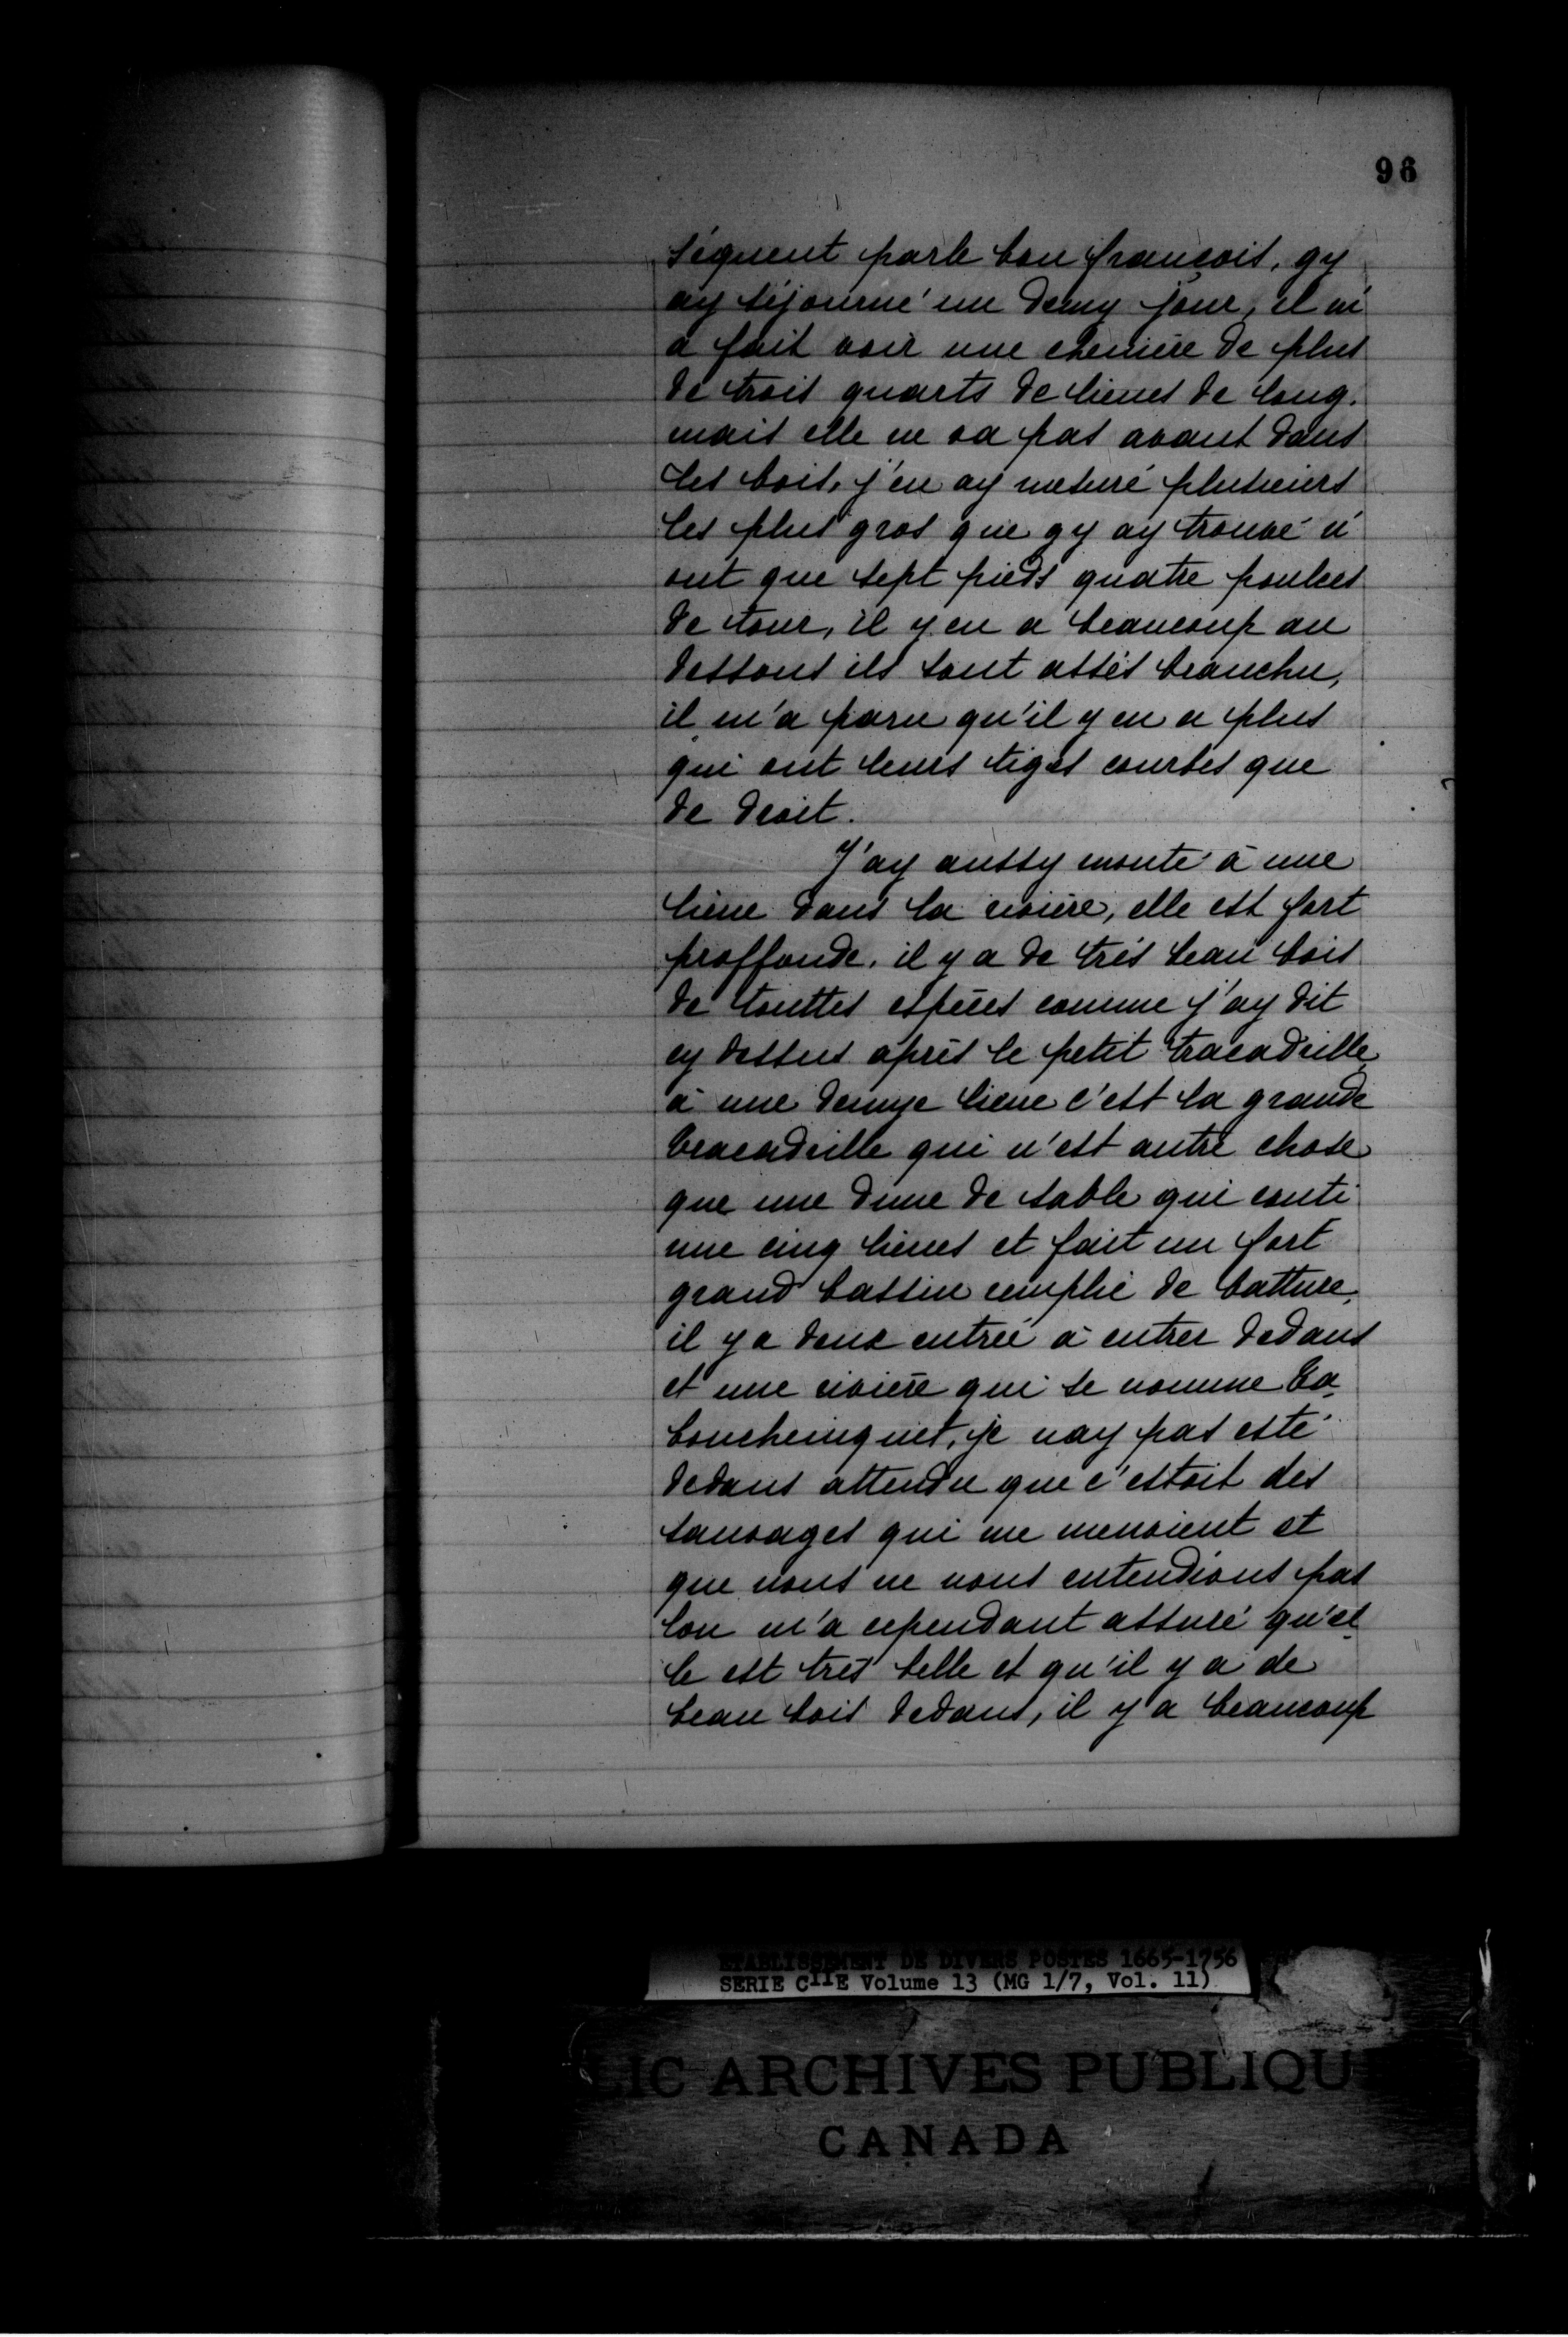 96
séquent parle bon françois, gy
ay séjourné un demy jour, il m'
a fait voir une cheniere de plus
de trois quarts de lieues de long.
mais elle ne va pas avant dans
les bois, j'en ay mesuré plusieurs
les plus gros que gy ay trouvé n'
ont que sept pieds quatre poulces
de tour, il y en a beaucoup au
dessous ils sont assés branchu,
il m'a paru qu'il y en a plus
qui ont leurs tiges courbes que
de droit.
J'ay aussy monté à une
lieue dans la rivière, elle est fort
proffonde, il y a de très beau bois
de touttes espèces comme j'ay dit
cy dessus après le petit tracadille
à une demye lieue c'est la grande
tracadille qui n'est autre chose
que une dune de sable qui conti
nue cinq lieues et fait un fort
grand bassin remplie de batture,
il y a deux entrée à entrer dedans
et une rivière qui se nomme Ca
bouchinquet, je nay pas esté
dedans attendu que c'estoit des
sauvages qui me menoient et
que nous ne nous entendions pas
lon m'a cependant assuré qu'el
le est très belle et qu'il y a de
beau bois dedans, il y a beaucoup
ETABLISSEMENT DE DIVERS POSTES 1665-1756
SERIE CIIE Volume 13 (MG 1/7, Vol. 11)
LIC ARCHIVES PUBLIQU
CANADA